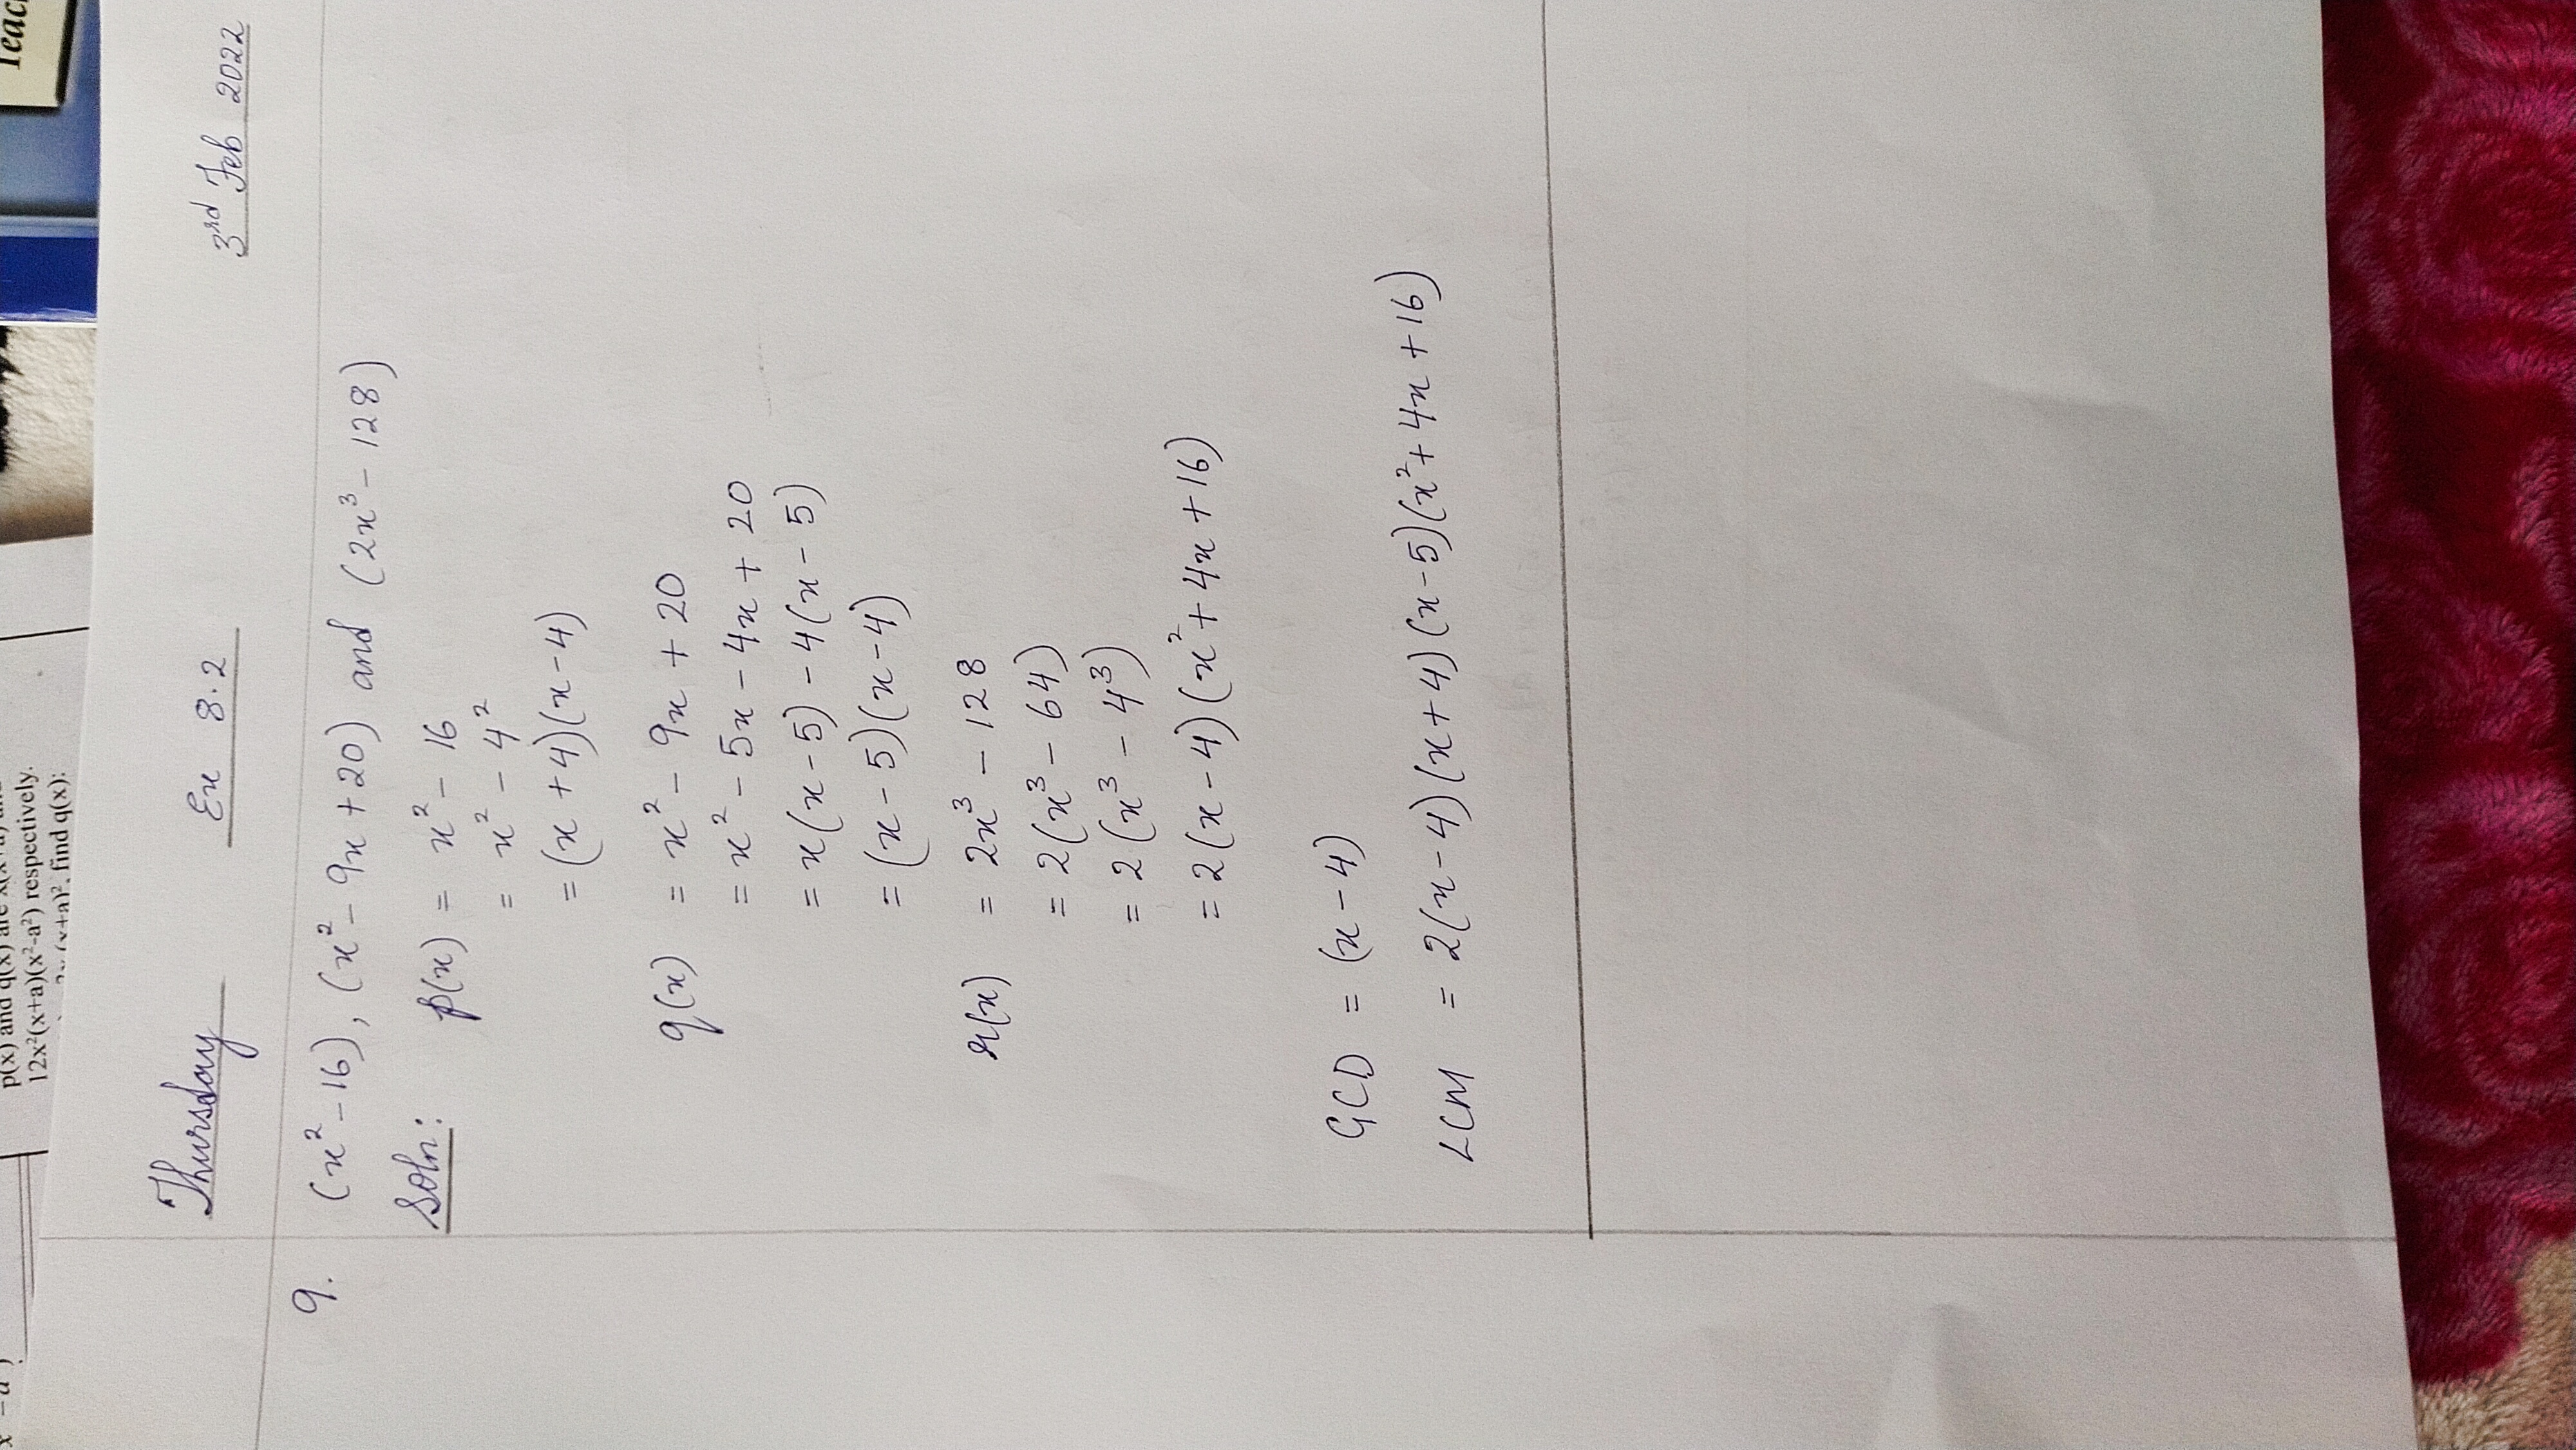 Teac
p(x) and q(x) are x(x+a) and
12x²(x+a)(x²-a²) respectively.
(x+a)², find q(x):
Thursday Ex 8.2 3rd Feb 2022
9. (x² - 16), (x² - 9x + 20) and (2x³ - 128)
Soln: p(x) = x² - 16
= x² - 4²
= (x + 4)(x - 4)
q(x) = x² - 9x + 20
= x² - 5x - 4x + 20
= x(x - 5) - 4(x - 5)
= (x - 5)(x - 4)
r(x) = 2x³ - 128
= 2(x³ - 64)
= 2(x³ - 4³)
= 2(x - 4)(x² + 4x + 16)
GCD = (x - 4)
LCM = 2(x - 4)(x + 4)(x - 5)(x² + 4x + 16)